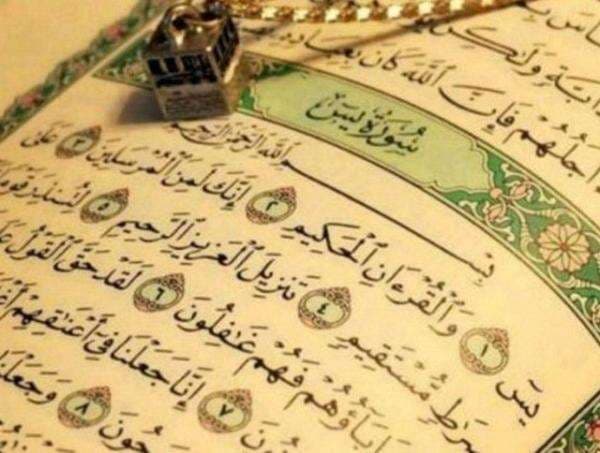 ٱبَّةٍ وَلَٰكِن
أَجَلُهُمْ فَإِنَّ ٱللَّهَ كَانَ بِعِبَادِهِ
سُورَةُ يسٓ
بِسْمِ ٱللَّهِ ٱلرَّحْمَٰنِ ٱلرَّحِيمِ
يسٓ ١ وَٱلْقُرْءَانِ ٱلْحَكِيمِ ٢ إِنَّكَ لَمِنَ ٱلْمُرْسَلِينَ ٣ عَلَىٰ
صِرَٰطٍ مُّسْتَقِيمٍ ٤ تَنزِيلَ ٱلْعَزِيزِ ٱلرَّحِيمِ ٥ لِتُنذِرَ قَوْمًا
ءَابَآؤُهُمْ فَهُمْ غَٰفِلُونَ ٦ لَقَدْ حَقَّ ٱلْقَوْلُ عَلَ
ونَ ٧ إِنَّا جَعَلْنَا فِىٓ أَعْنَٰقِهِمْ أَغْ
حُونَ ٨ وَجَعَلْنَا